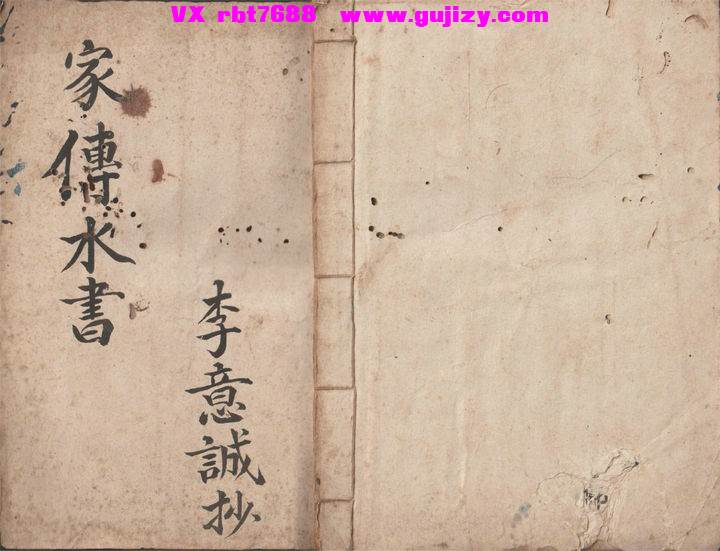 VX rbt7688 www.gujizy.com
家傳水書
李意誠抄